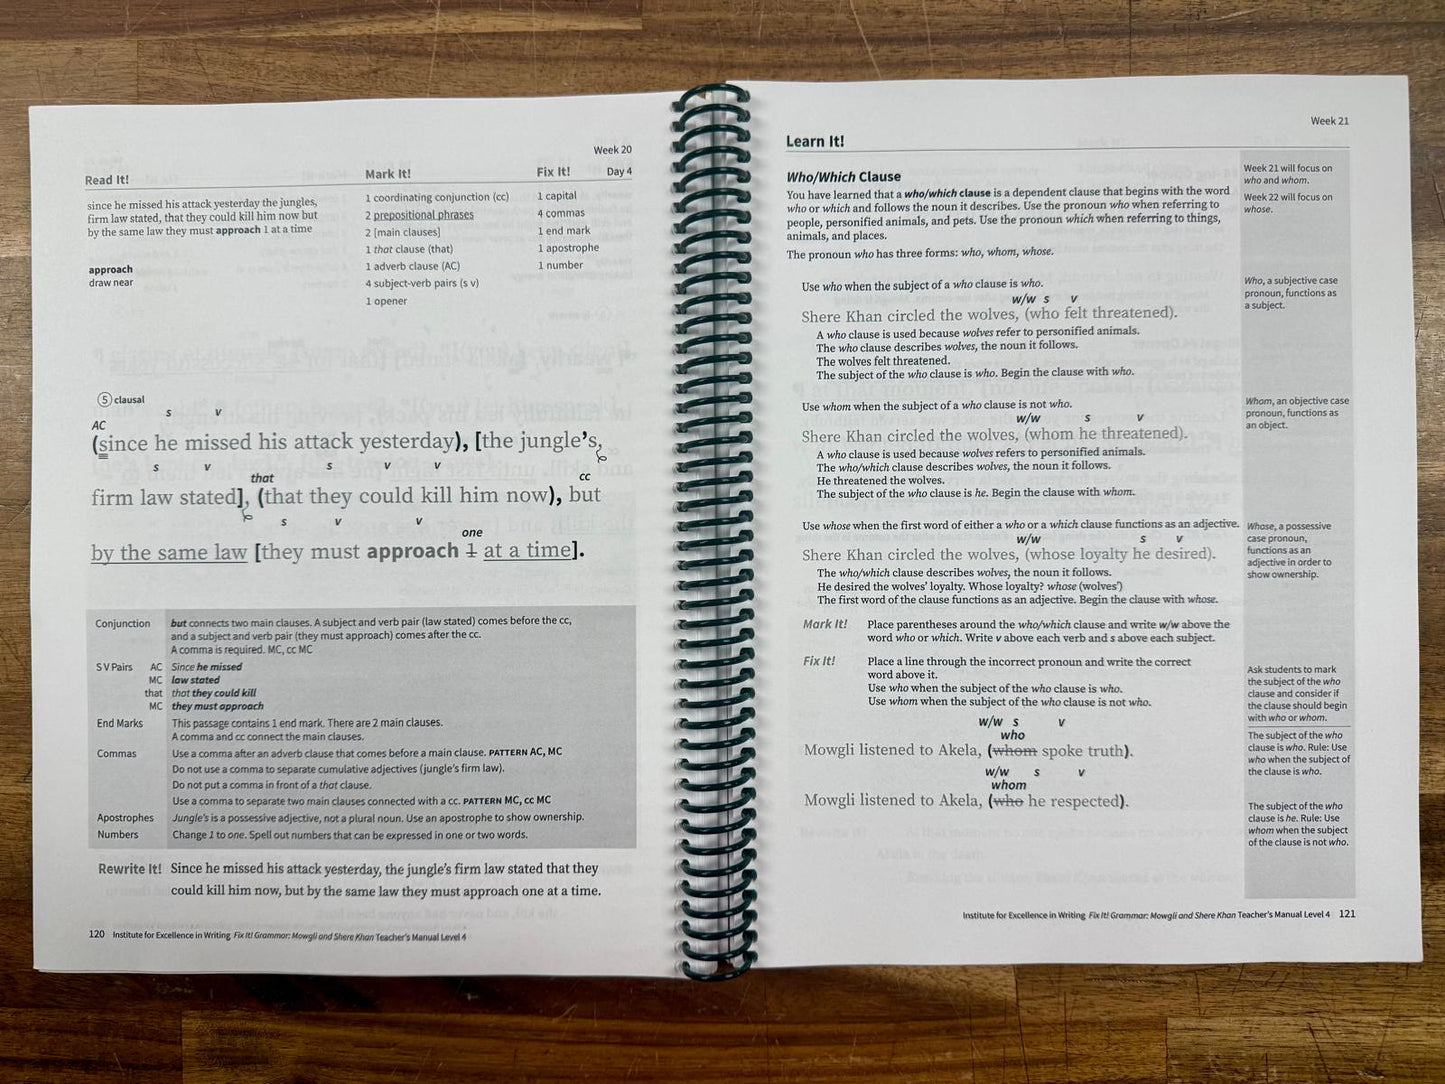 Week 20
Read It!
Mark It!
Fix It!
Day 4
since he missed his attack yesterday the jungles,
firm law stated, that they could kill him now but
by the same law they must approach 1 at a time
approach
draw near
1 coordinating conjunction (cc)
2 prepositional phrases
2 [main clauses]
1 that clause (that)
1 adverb clause (AC)
4 subject-verb pairs (s v)
1 opener
1 capital
4 commas
1 end mark
1 apostrophe
1 number
5 clausal
s v
AC
(since he missed his attack yesterday), [the jungle's,
s v s v v
that cc
firm law stated], (that they could kill him now), but
s v v
one
by the same law [they must approach 1 at a time].
Conjunction but connects two main clauses. A subject and verb pair (law stated) comes before the cc,
and a subject and verb pair (they must approach) comes after the cc.
A comma is required. MC, cc MC
S V Pairs AC Since he missed
MC law stated
that that they could kill
MC they must approach
End Marks This passage contains 1 end mark. There are 2 main clauses.
A comma and cc connect the main clauses.
Commas Use a comma after an adverb clause that comes before a main clause. PATTERN AC, MC
Do not use a comma to separate cumulative adjectives (jungle's firm law).
Do not put a comma in front of a that clause.
Use a comma to separate two main clauses connected with a cc. PATTERN MC, cc MC
Apostrophes Jungle's is a possessive adjective, not a plural noun. Use an apostrophe to show ownership.
Numbers Change 1 to one. Spell out numbers that can be expressed in one or two words.
Rewrite It! Since he missed his attack yesterday, the jungle's firm law stated that they
could kill him now, but by the same law they must approach one at a time.
120 Institute for Excellence in Writing Fix It! Grammar: Mowgli and Shere Khan Teacher's Manual Level 4
Week 21
Learn It!
Who/Which Clause
You have learned that a who/which clause is a dependent clause that begins with the word
who or which and follows the noun it describes. Use the pronoun who when referring to
people, personified animals, and pets. Use the pronoun which when referring to things,
animals, and places.
The pronoun who has three forms: who, whom, whose.
Use who when the subject of a who clause is who.
w/w s v
Shere Khan circled the wolves, (who felt threatened).
A who clause is used because wolves refer to personified animals.
The who clause describes wolves, the noun it follows.
The wolves felt threatened.
The subject of the who clause is who. Begin the clause with who.
Use whom when the subject of a who clause is not who.
w/w s v
Shere Khan circled the wolves, (whom he threatened).
A who clause is used because wolves refers to personified animals.
The who/which clause describes wolves, the noun it follows.
He threatened the wolves.
The subject of the who clause is he. Begin the clause with whom.
Use whose when the first word of either a who or a which clause functions as an adjective.
w/w s v
Shere Khan circled the wolves, (whose loyalty he desired).
The who/which clause describes wolves, the noun it follows.
He desired the wolves' loyalty. Whose loyalty? whose (wolves')
The first word of the clause functions as an adjective. Begin the clause with whose.
Mark It! Place parentheses around the who/which clause and write w/w above the
word who or which. Write v above each verb and s above each subject.
Fix It! Place a line through the incorrect pronoun and write the correct
word above it.
Use who when the subject of the who clause is who.
Use whom when the subject of the who clause is not who.
w/w s v
who
Mowgli listened to Akela, (whom spoke truth).
w/w s v
whom
Mowgli listened to Akela, (who he respected).
Week 21 will focus on
who and whom.
Week 22 will focus on
whose.
Who, a subjective case
pronoun, functions as
a subject.
Whom, an objective case
pronoun, functions as
an object.
Whose, a possessive
case pronoun,
functions as an
adjective in order to
show ownership.
Ask students to mark
the subject of the who
clause and consider if
the clause should begin
with who or whom.
The subject of the who
clause is who. Rule: Use
who when the subject of
the clause is who.
The subject of the who
clause is he. Rule: Use
whom when the subject
of the clause is not who.
Institute for Excellence in Writing Fix It! Grammar: Mowgli and Shere Khan Teacher's Manual Level 4 121